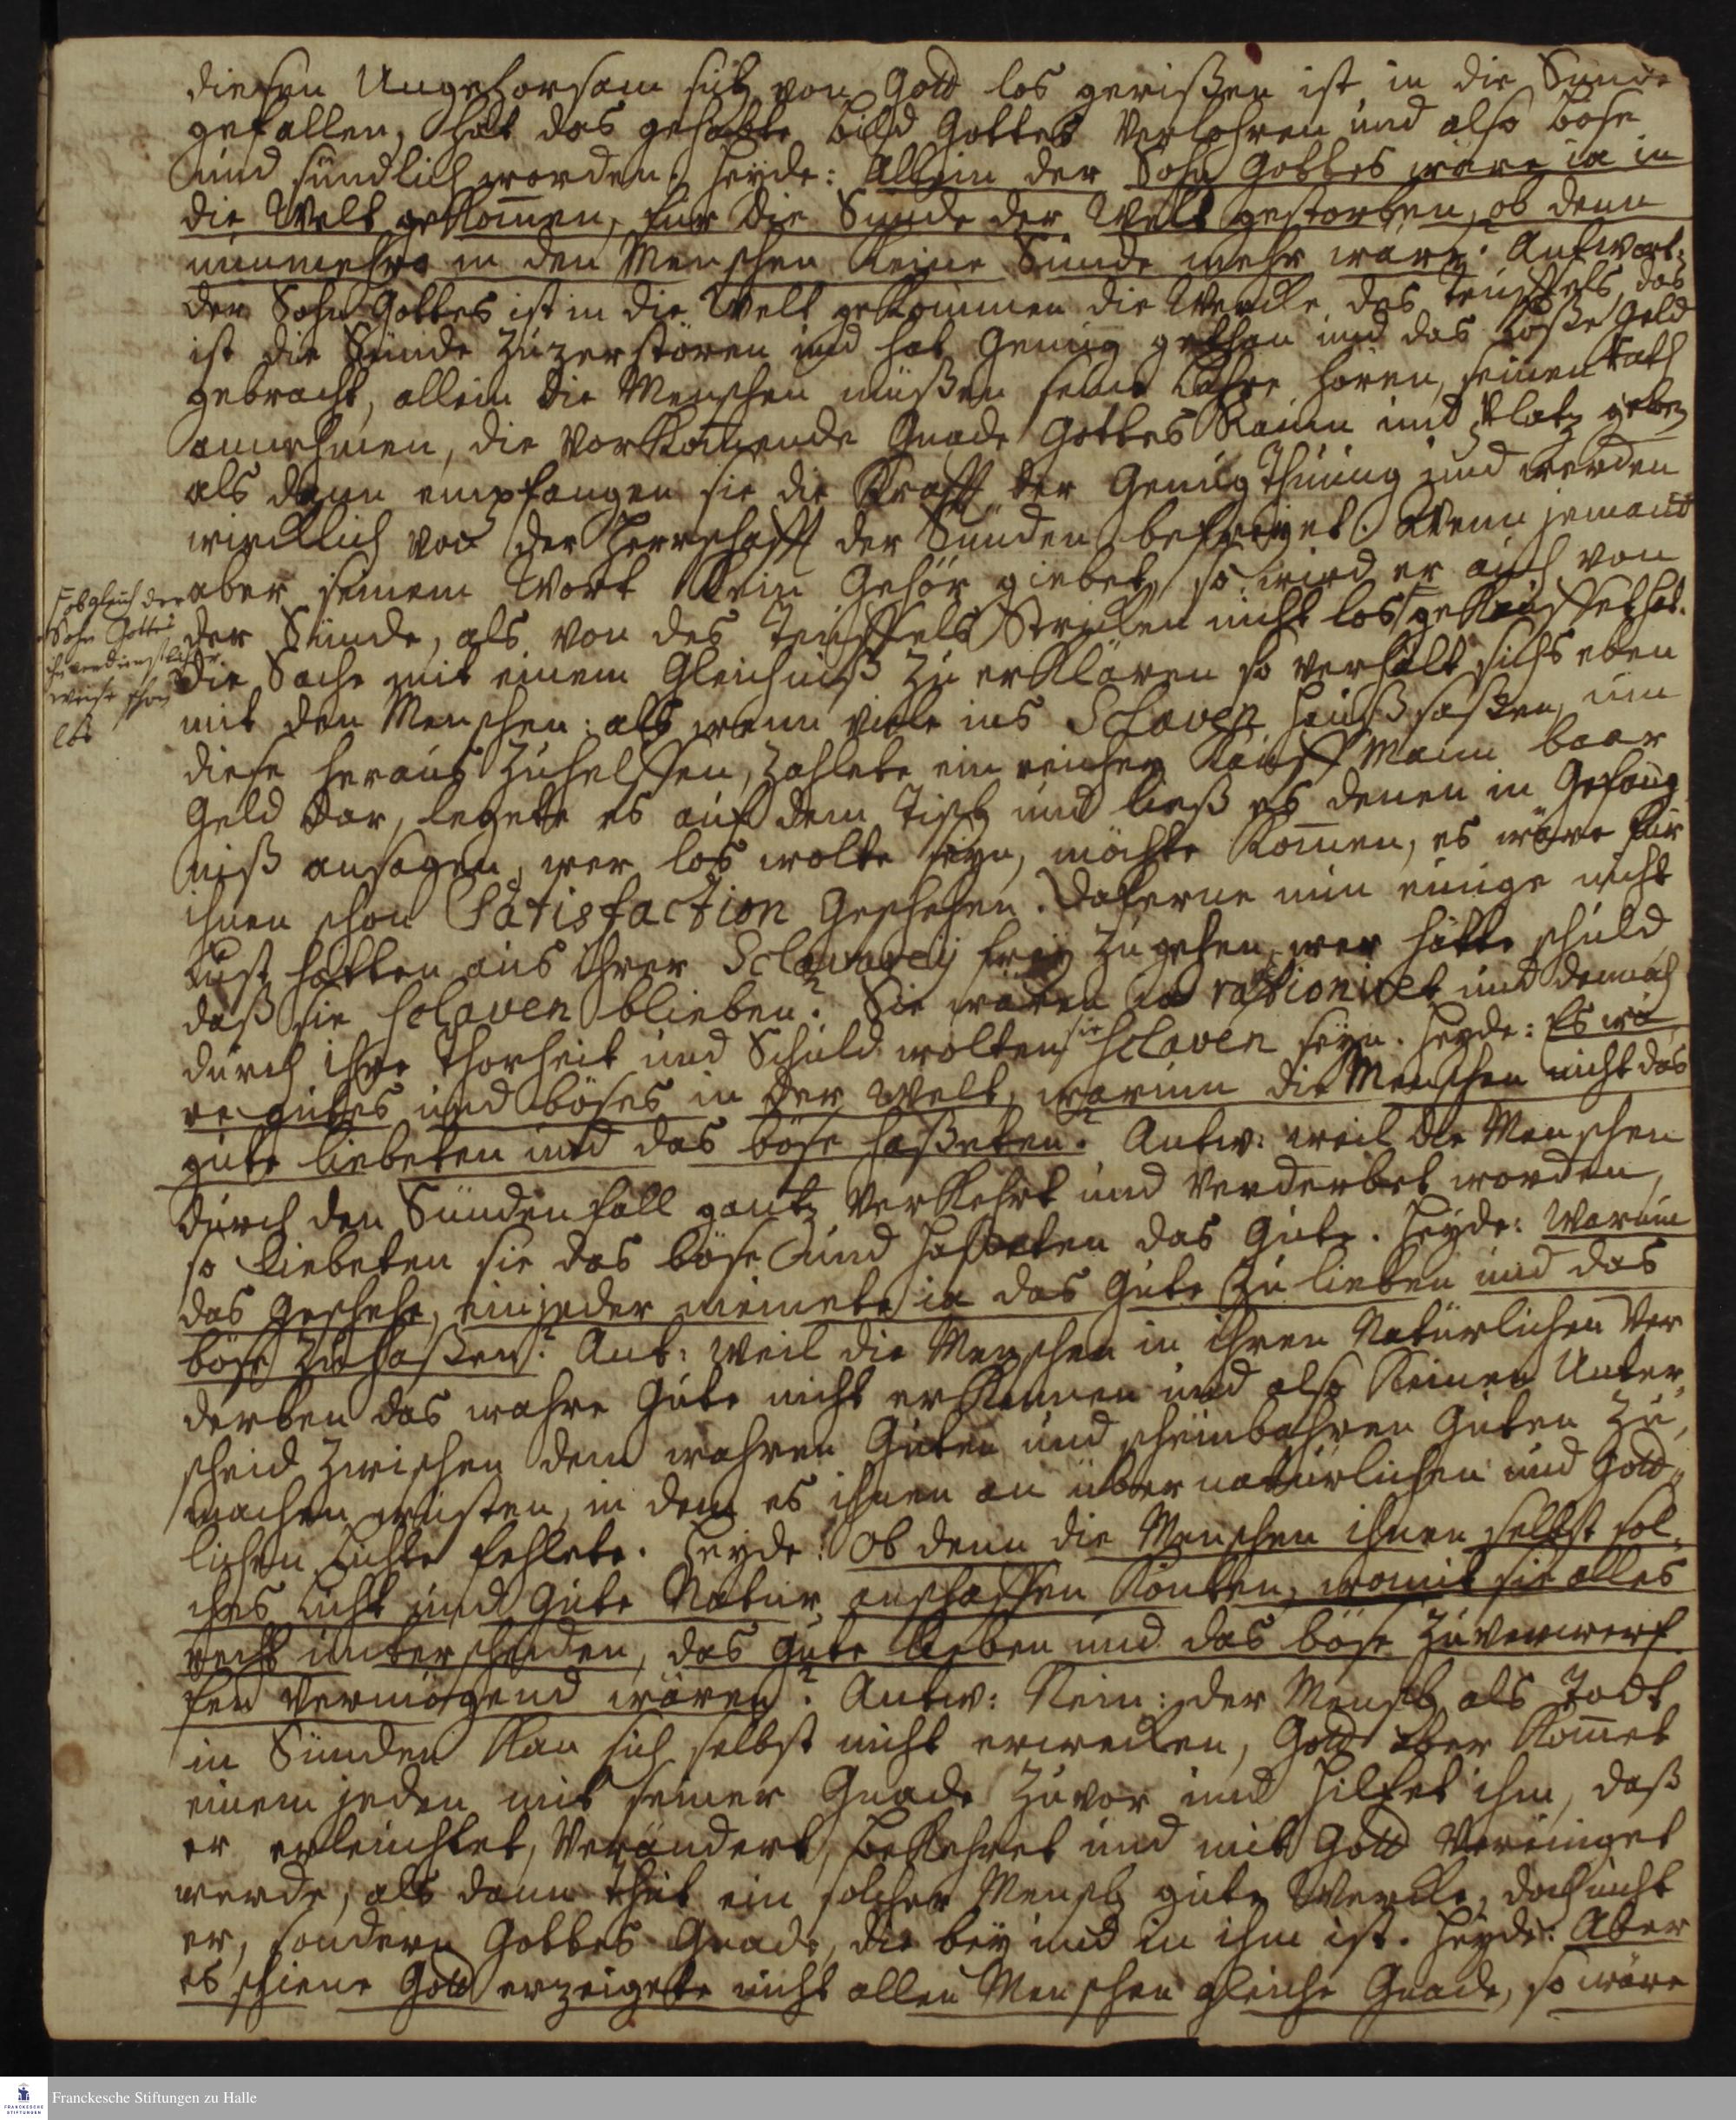 diesen Ungehorsam sich von Gott los gerißen ist in die Sünde
gefallen, hat das gehabte bild Gottes verlohren und also böse
und sündlich worden. Heyde: Allein der Sohn Gottes wäre ia in
die Welt gekom̅en, für die Sünde der Welt gestorben, ob denn
nunmehro in den Menschen keine Sünde mehr wäre? Antwort:
der Sohn Gottes ist in die Welt gekommen die Wercke des Teuffels, das
ist die Sünde zuzerstören und hat Genug gethan und das Löße Geld
gebracht, allein die Menschen müßen seine Lehre hören, seinen Rath
annehmen, die vorkom̅ende Gnade Gottes Raum und Platz geben
als dann empfangen sie die Krafft der Genugthuung und werden
wircklich von der Herrschafft der Sünden befreyet. Wenn jemand
aber seinem Wort kein Gehör giebet, so wird er auch von
der Sünde, als von des Teuffels Stricken nicht los,
obgleich der
Sohn Gottes
ihn verdienstlicher
weise schon
los
gekauffet hat.
die Sache mit einem Gleichniß zu erklären so verhält sichs eben
mit den Menschen: als wenn viele ins Sclaven Hauß saßen, um
diese heraus zuhelffen, zahlete ein reicher Kauff Mann baar
Geld dar, legete es auf dem Tisch und ließ es denen in Gefäng
niß ansagen, wer los wolte seyn, möchte kom̅en, es wäre für
ihnen schon Satisfaction geschehen. Daferne nun einige nicht
Lust hätten aus ihrer Sclaverey frey zugehen, wer hätte schuld
daß sie sclaven blieben? Sie wären ia rationiret und dennoch
durch ihre Thorheit und Schuld wolten sie sclaven seyn. Heyde: Es wä
re gutes und böses in der Welt, warum die Menschen nicht das
gute liebeten und das böse haßeten? Antw: weil die Menschen
durch den Sündenfall gantz verkehrt und verderbet worden,
so liebeten sie das böse und haßeten das Gute. Heyde: Warum
das geschehe, ein jeder meinete ia das Gute zu lieben und das
böse zuhaßen? Ant: weil die Menschen in ihren Natürlichen Ver
derben das wahre Gute nicht erkennen und also keinen Unter-
scheid zwischen dem wahren Guten und scheinbahren Guten zu
machen wüsten, in dem es ihnen an übernatürlichen und Gött-
lichen Lichte fehlete. Heyde: Ob denn die Menschen ihnen selbst sol-
ches Licht und Gute Natur anschaffen könten, womit sie alles
recht unterscheiden, das Gute lieben und das böse zuverwerf-
fen vermögend wären? Antw: Nein: der Mensch als Todt
in Sünden kan sich selbst nicht erwecken, Gott aber kom̅et
einem jeden mit seiner Gnade zuvor und hilfet ihm, daß
er erleuchtet, verändert, bekehret und mit Gott vereiniget
werde, als dann thut ein solcher Mensch gute Wercke, doch nicht
er, sondern Gottes Gnade, die bey und in ihm ist. Heyde: Aber
es schiene Gott erzeigete nicht allen Menschen gleiche Gnade, so wäre
Franckesche Stiftungen zu Halle